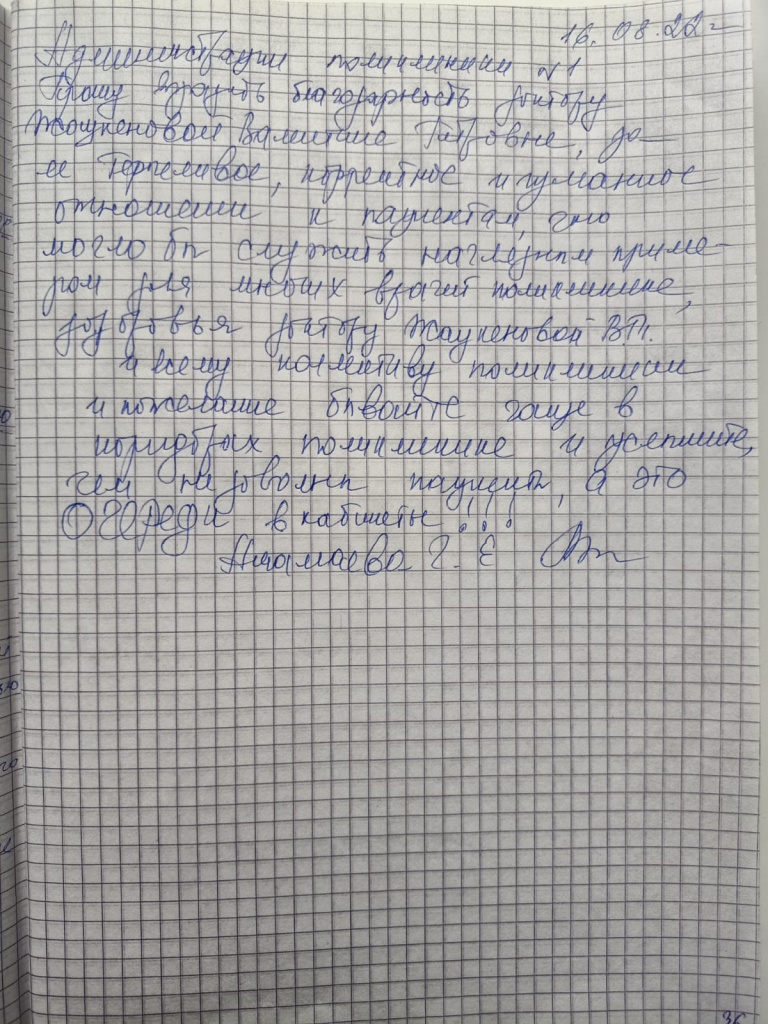 16.08.22г
Администрации поликлиники №1
Прошу выразить благодарность доктору
Жаукеновой Валентине Петровне, за
ее терпеливое, корректное и гуманное
отношении к пациентам, что
могло бы служить наглядным приме-
ром для многих врачей поликлинике,
здоровья доктору Жаукеновой В.П.
и всему коллективу поликлиники
и пожелание бывайте чаще в
коридорах поликлинике и услышите,
чем недовольны пациенты, а это
ОЧЕРЕДИ в кабинеты!!!
Г. Е
36